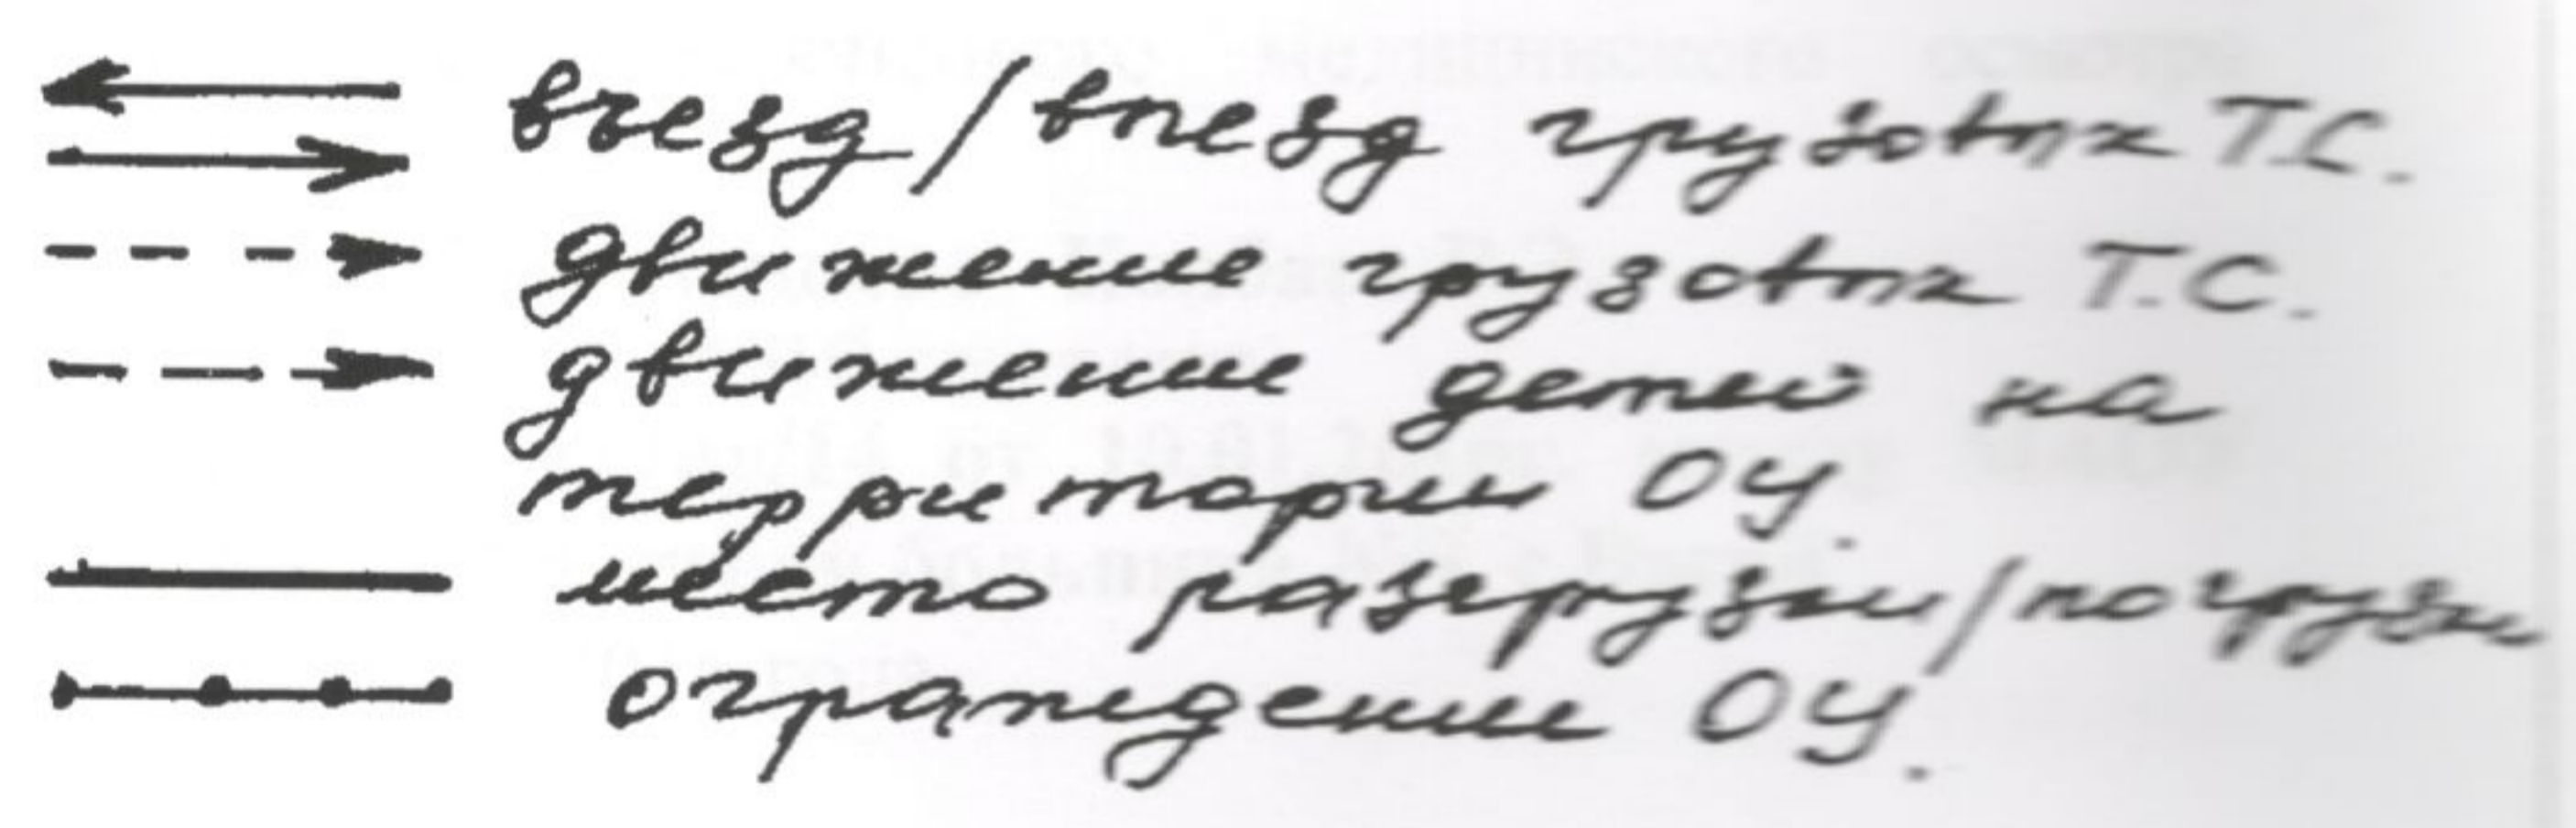 въезд/выезд грузовых Т.С.
движение грузовых Т.С.
движение детей на
территории ОУ.
место разгрузки/погрузки
ограждение ОУ.